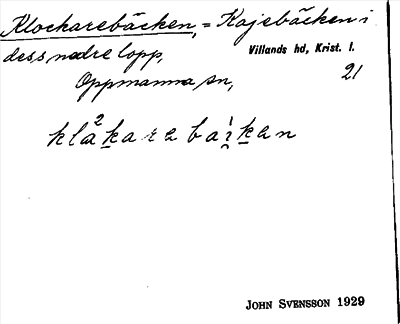 Klockarebäcken, = Kajebäcken i
dess nedre lopp, Villands hd, Krist. l.
Oppmanna sn, 21
klåkarebaken
JOHN SVENSSON 1929